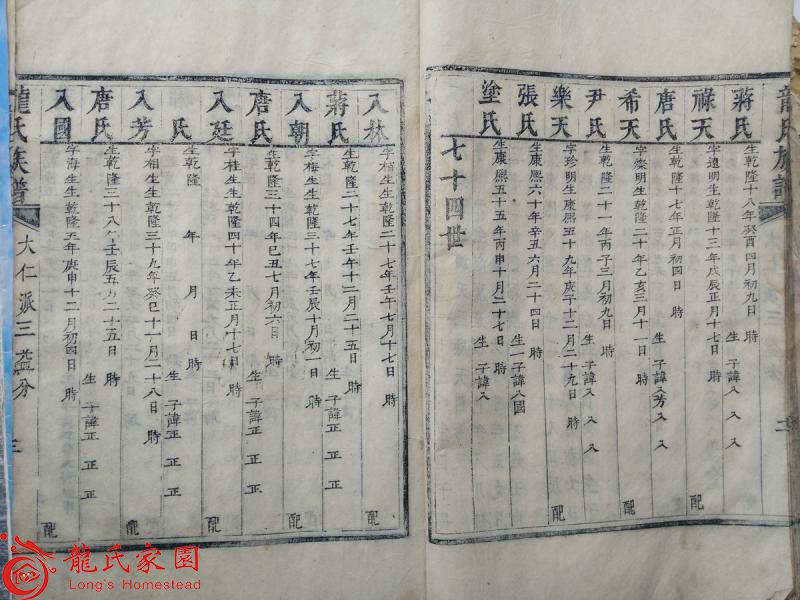 龍氏族譜
蔣氏 生乾隆十八年癸酉四月初九日 時 生 子諱入
祿天 字遠明生乾隆十三年戊辰正月十七日 時 配
唐氏 生乾隆十七年正月初四日 時 生 子諱入芳入 入
希天 字燦明生乾隆二十年乙亥三月十一日 時 配
尹氏 生乾隆二十一年丙子三月初九日 時 生 子諱入 入 入
樂天 字珍明生康熙五十九年庚子十二月二十九日 時 配
張氏 生康熙六十年辛丑六月二十四日 時 生一子諱入國
塗氏 生康熙五十五年丙申十月二十七日 時 生 子諱入
七十四世
入林 字栢生生乾隆二十七年壬午七月十七日 時 配
蔣氏 生乾隆二十七年壬午十二月二十五日 時 生 子諱正 正 正
入朝 字梅生生乾隆三十七年壬辰十月初一日 時 配
唐氏 生乾隆三十四年己丑七月初六日 時 生 子諱正 正 正
入廷 字桂生生乾隆四十年乙未正月十七日 時 配
氏 生乾隆 年 月 日 時 生 子諱正 正 正
入芳 字相生生乾隆三十九年癸巳十一月二十八日 時 配
唐氏 生乾隆三十八年壬辰五月二十五日 時 生 子諱正 正 正
入國 字海生生乾隆五年庚申十二月初四日 時 配
龍氏族譜 大仁派三益分 三
龍氏家園
Long's Homestead